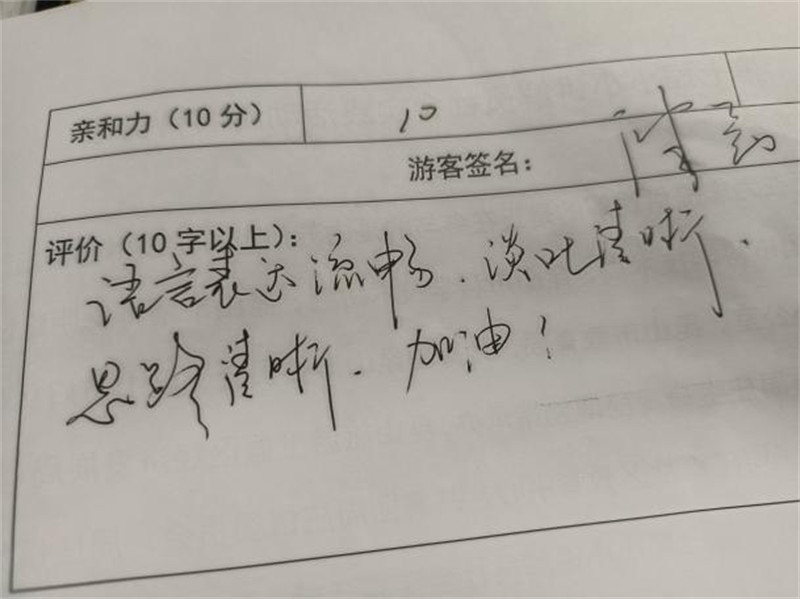 亲和力（10分） 10
游客签名：
评价（10字以上）：
语言表达流畅．谈吐清晰．
思路清晰．加油！